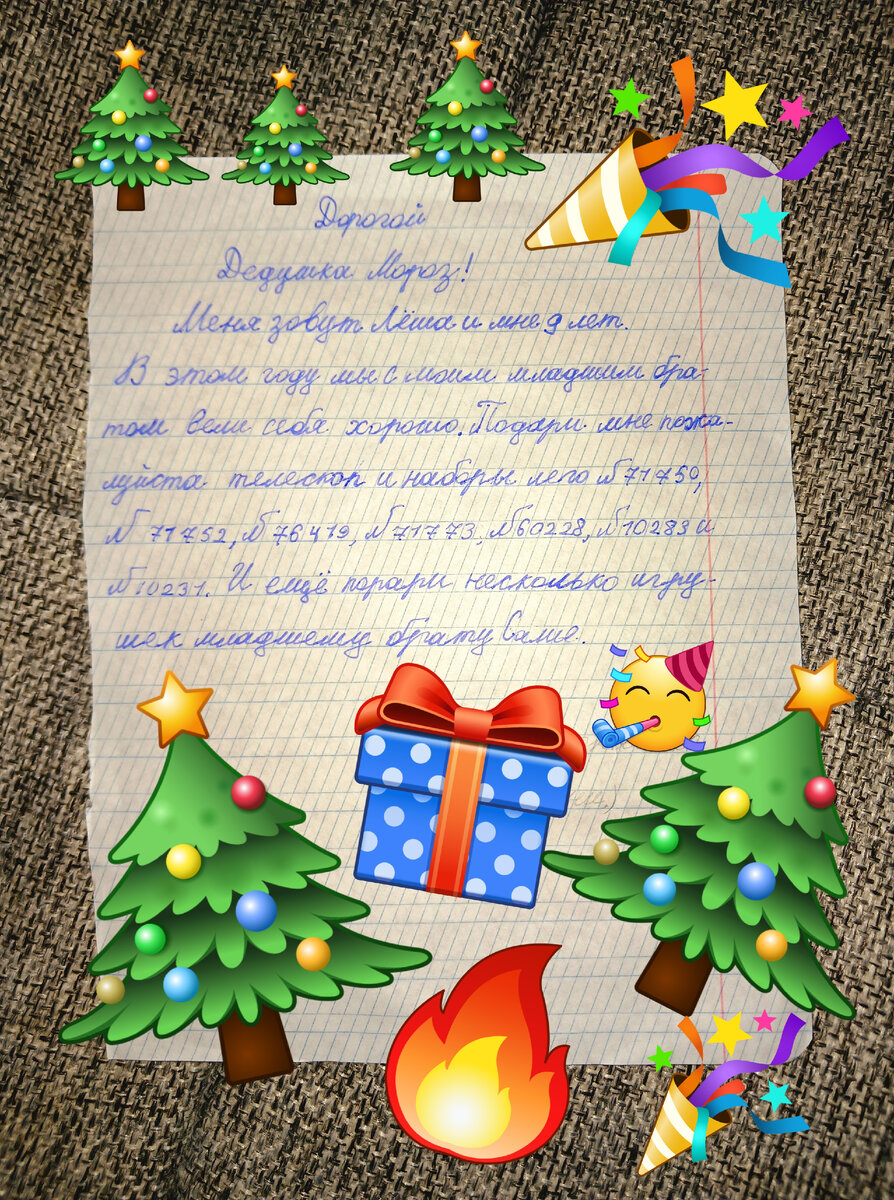 Дорогой
Дедушка Мороз!
Меня зовут Лёша и мне 9 лет.
В этом году мы с моим младшим бра-
том вели себя хорошо. Подари мне пожа-
луйста телескоп и наборы лего №71759,
№71752, №76419, №71773, №60228, №10283 и
№10231. И ещё порари несколько игру-
шек младшему брату Ване.